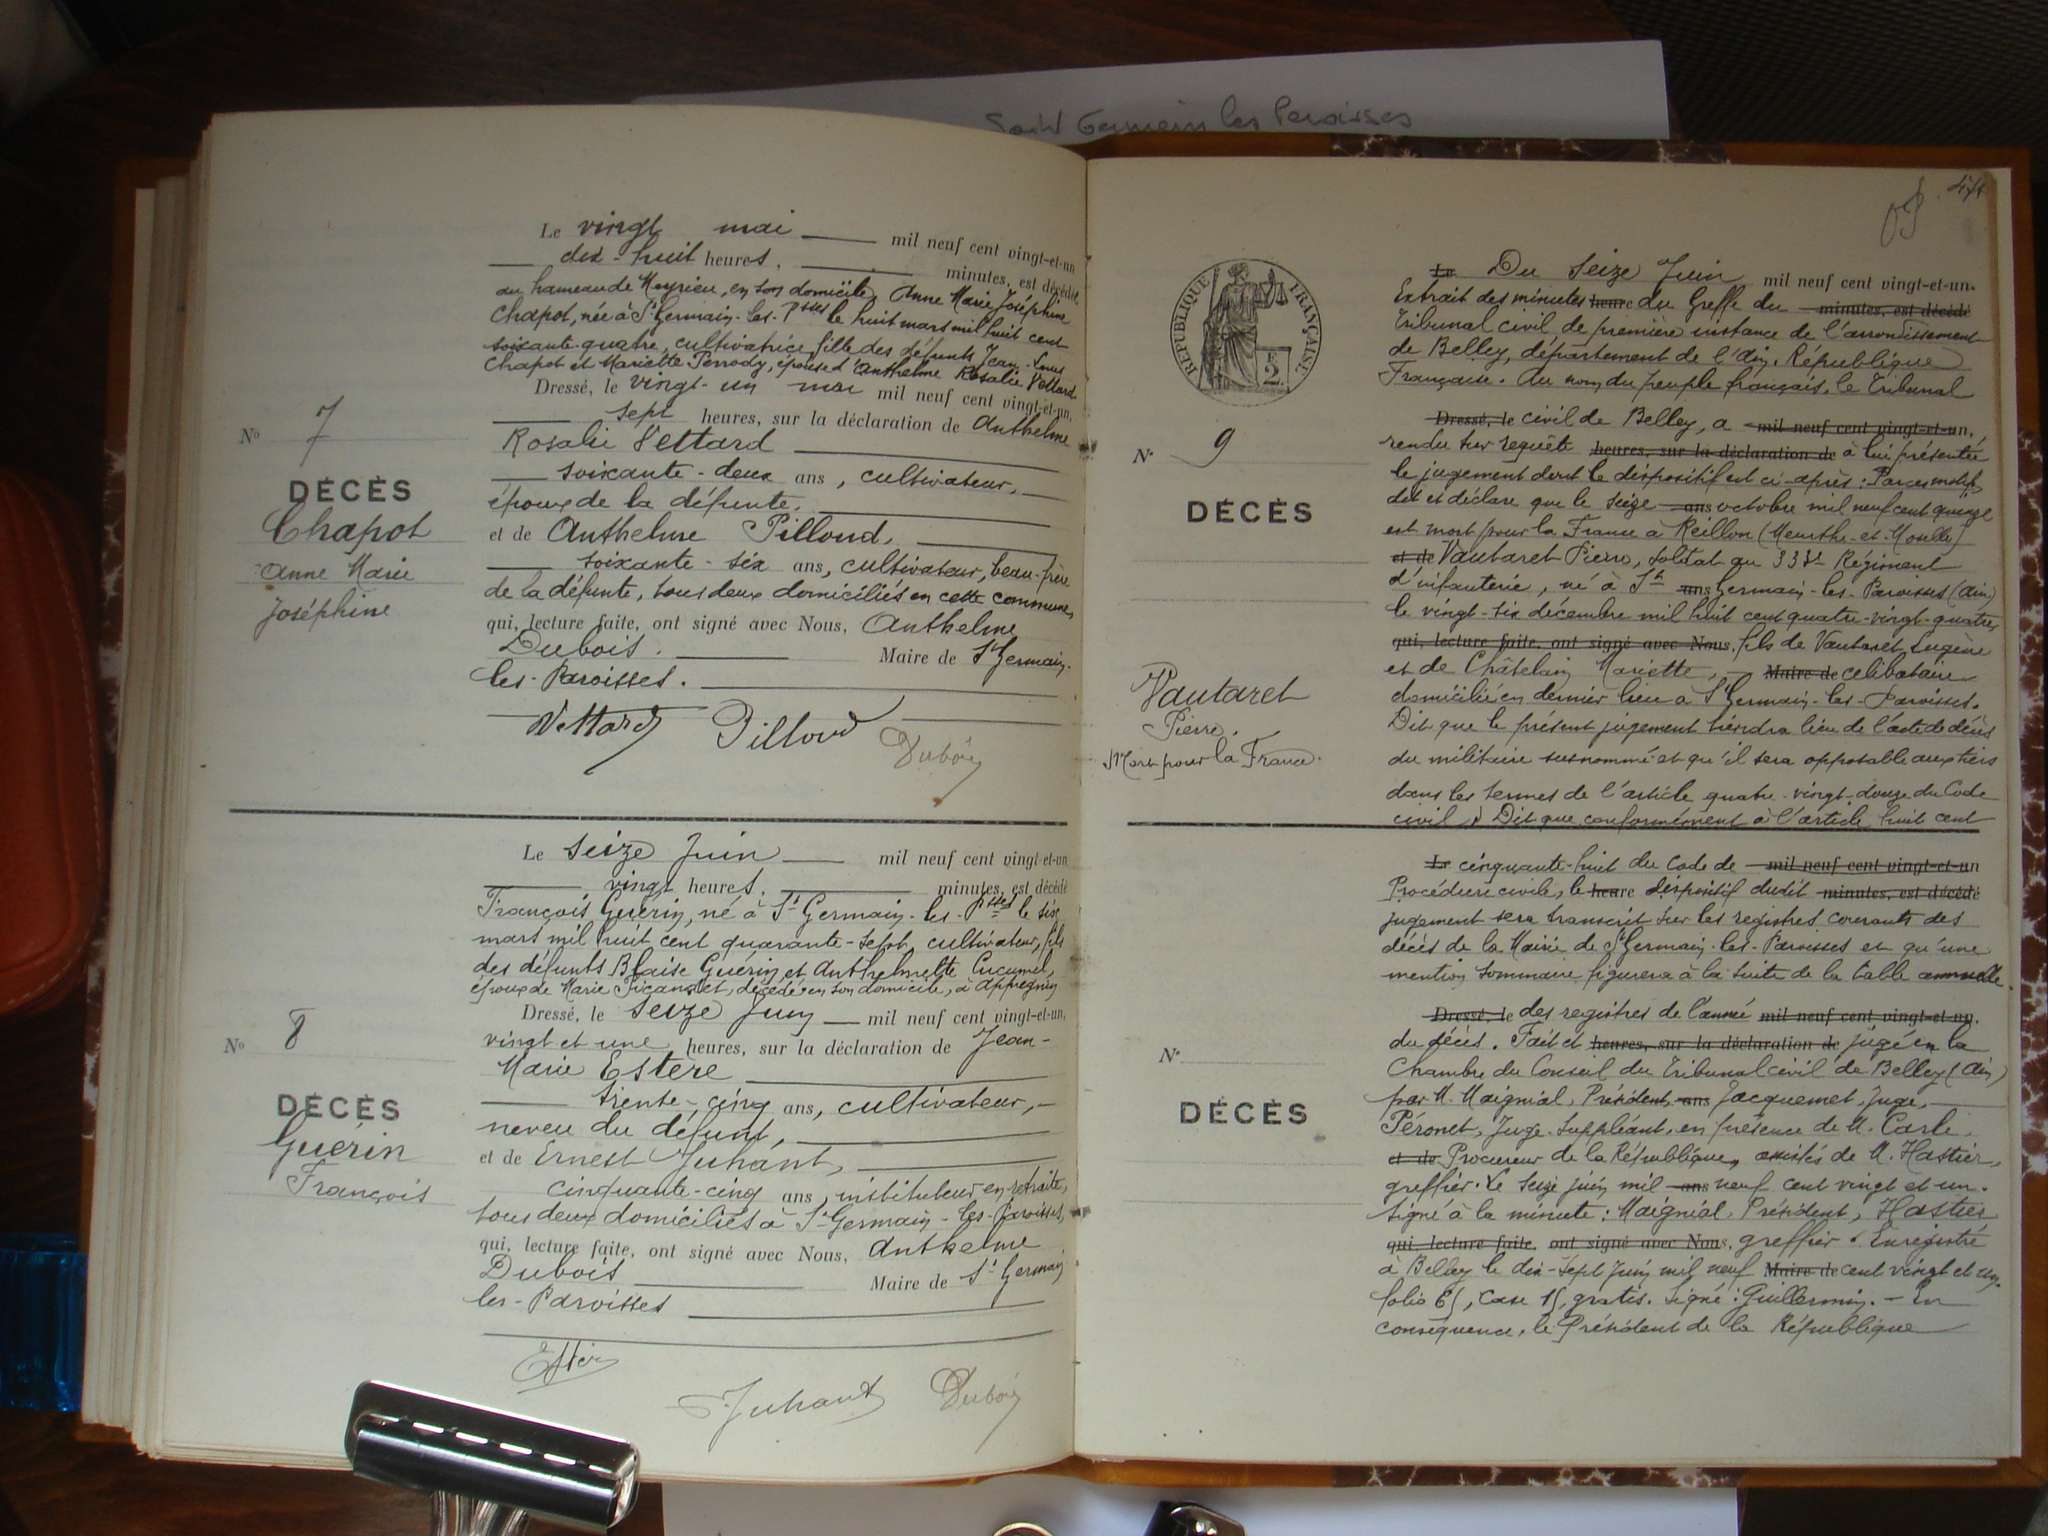 Saint Germain les Paroisses
Le vingt mai mil neuf cent vingt-et-un
dix-huit heures, minutes, est décédée
au hameau de Meyrieu, en son domicile, Anne Marie Joséphine
Chapot, née à St Germain-les-Psses le huit mars mil huit cent
soixante-quatre, cultivatrice, fille des défunts Jean-Louis
Chapot et Mariette Perrody, épouse d'Anthelme Rosalie Vettard
Dressé, le vingt-un mai mil neuf cent vingt-et-un,
sept heures, sur la déclaration de Anthelme
Rosalie Vettard
soixante-deux ans, cultivateur,
époux de la défunte,
et de Anthelme Pilloud,
soixante-six ans, cultivateur, beau-frère
de la défunte, tous deux domiciliés en cette commune,
qui, lecture faite, ont signé avec Nous, Anthelme
Dubois. Maire de St Germain-
les-Paroisses.
Vettard Pilloud Dubois
No 7
DÉCÈS
Chapot
Anne Marie
Joséphine
Le Seize Juin mil neuf cent vingt-et-un
vingt heures, minutes, est décédé
François Guérin, né à St Germain-les-Psses le six
mars mil huit cent quarante-sept, cultivateur, fils
des défunts Blaise Guérin et Anthelmette Cucumel,
époux de Marie, décédé en son domicile, à Appregnin
Dressé, le seize Juin mil neuf cent vingt-et-un,
vingt et une heures, sur la déclaration de Jean-
Marie Estère
trente-cinq ans, cultivateur,
neveu du défunt,
et de Ernest Juhant,
cinquante-cinq ans, instituteur en retraite,
tous deux domiciliés à St-Germain-les-Paroisses,
qui, lecture faite, ont signé avec Nous, Anthelme
Dubois Maire de St Germain
les-Paroisses
Juhant Dubois
No 8
DÉCÈS
Guérin
François
RÉPUBLIQUE FRANÇAISE
2 F
Le Du Seize Juin mil neuf cent vingt-et-un
Extrait des minutes heure du Greffe du minutes, est décédé
Tribunal civil de première instance de l'arrondissement
de Belley, département de l'Ain. République
Française. Au nom du peuple français. le Tribunal
Dressé, le civil de Belley, a mil neuf cent vingt-et-un,
rendu sur requête heures, sur la déclaration de à lui présentée
le jugement dont le dispositif est ci-après: Par ces motifs,
dit et déclare que le seize ans octobre mil neuf cent quinze
est mort pour la France à Reillon (Meurthe-et-Moselle)
et de Vautaret Pierre, soldat au 333e Régiment
d'infanterie, né à St ans Germain-les-Paroisses (Ain)
le vingt-six décembre mil huit cent quatre-vingt-quatre,
qui, lecture faite, ont signé avec Nous, fils de Vautaret Eugène
et de Châtelain Mariette, Maire de célibataire
domicilié en dernier lieu à St Germain-les-Paroisses.
Dit que le présent jugement tiendra lieu de l'acte de décès
du militaire susnommé et qu'il sera opposable aux tiers
dans les termes de l'article quatre-vingt-douze du Code
civil, Dit que conformément à l'article huit cent
No 9
DÉCÈS
Vautaret
Pierre.
Mort pour la France.
Le cinquante-huit du Code de mil neuf cent vingt-et-un
Procédure civile, le heure dispositif dudit minutes, est décédé
jugement sera transcrit sur les registres courants des
décès de la Mairie de St Germain-les-Paroisses et qu'une
mention sommaire figurera à la suite de la table annuelle
Dressé, le des registres de l'année mil neuf cent vingt-et-un,
du décès. Fait et heures, sur la déclaration de jugé en la
Chambre du Conseil du Tribunal civil de Belley (Ain)
par M. Maignial, Président, ans Jacquemet, Juge,
Péronet, Juge-Suppléant, en présence de M. Carle,
et de Procureur de la République, assistés de M. Hastier,
greffier. Le Seize juin mil ans neuf cent vingt et un.
Signé à la minute: Maignial, Président, Hastier
qui, lecture faite, ont signé avec Nous, greffier. Enregistré
à Belley le dix-sept Juin mil neuf Maire de cent vingt et un,
folio 65, Case 15, gratis. Signé: Guillermin. - En
conséquence, le Président de la République
No
DÉCÈS